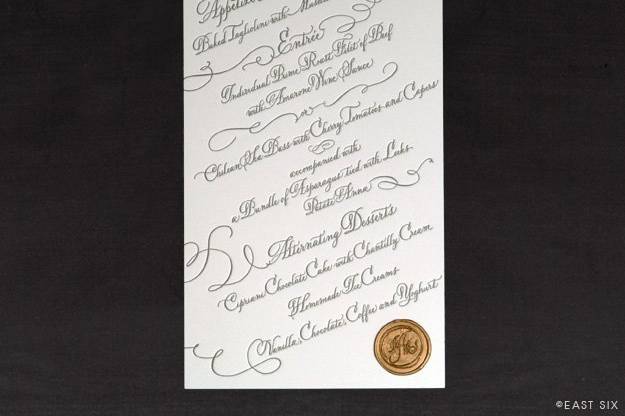 Appetizer
Baked Tagliolini with
Entrée
Individual Dome Roast Filet of Beef
with Amarone Wine Sauce
or
Chilean Sea Bass with Cherry Tomatoes and Capers
accompanied with
a Bundle of Asparagus tied with Leeks
Potato Anna
Alternating Desserts
Cipriani Chocolate Cake with Chantilly Cream
Homemade Ice Creams
Vanilla, Chocolate, Coffee and Yoghurt
©EAST SIX